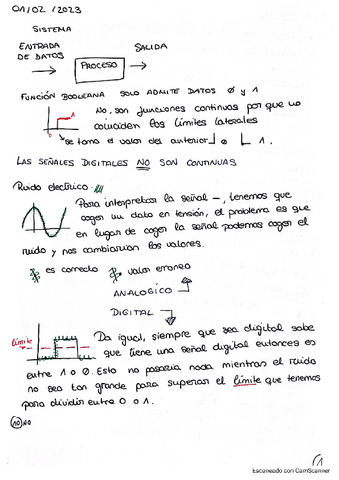 01/02/2023
SISTEMA
ENTRADA DE DATOS
PROCESO
SALIDA
FUNCIÓN BOOLEANA SOLO ADMITE DATOS 0 y 1
No, son funciones continuas por que no
coinciden los límites laterales
se toma el valor del anterior ┘ o └ 1.
LAS SEÑALES DIGITALES NO SON CONTINUAS
Ruido electrico:
Para interpretar la señal ~, tenemos que
coger un dato en tensión, el problema es que
en lugar de coger la señal podemos coger el
ruido y nos cambiarian los valores.
es correcto valor erroneo
ANALOGICO
DIGITAL
límite
Da igual, siempre que sea digital sabe
que tiene una señal digital entonces es
entre 1 o 0. Esto no pasaria nada mientras el ruido
no sea tan grande para superar el límite que tenemos
para dividir entre 0 o 1.
1
Escaneado con CamScanner